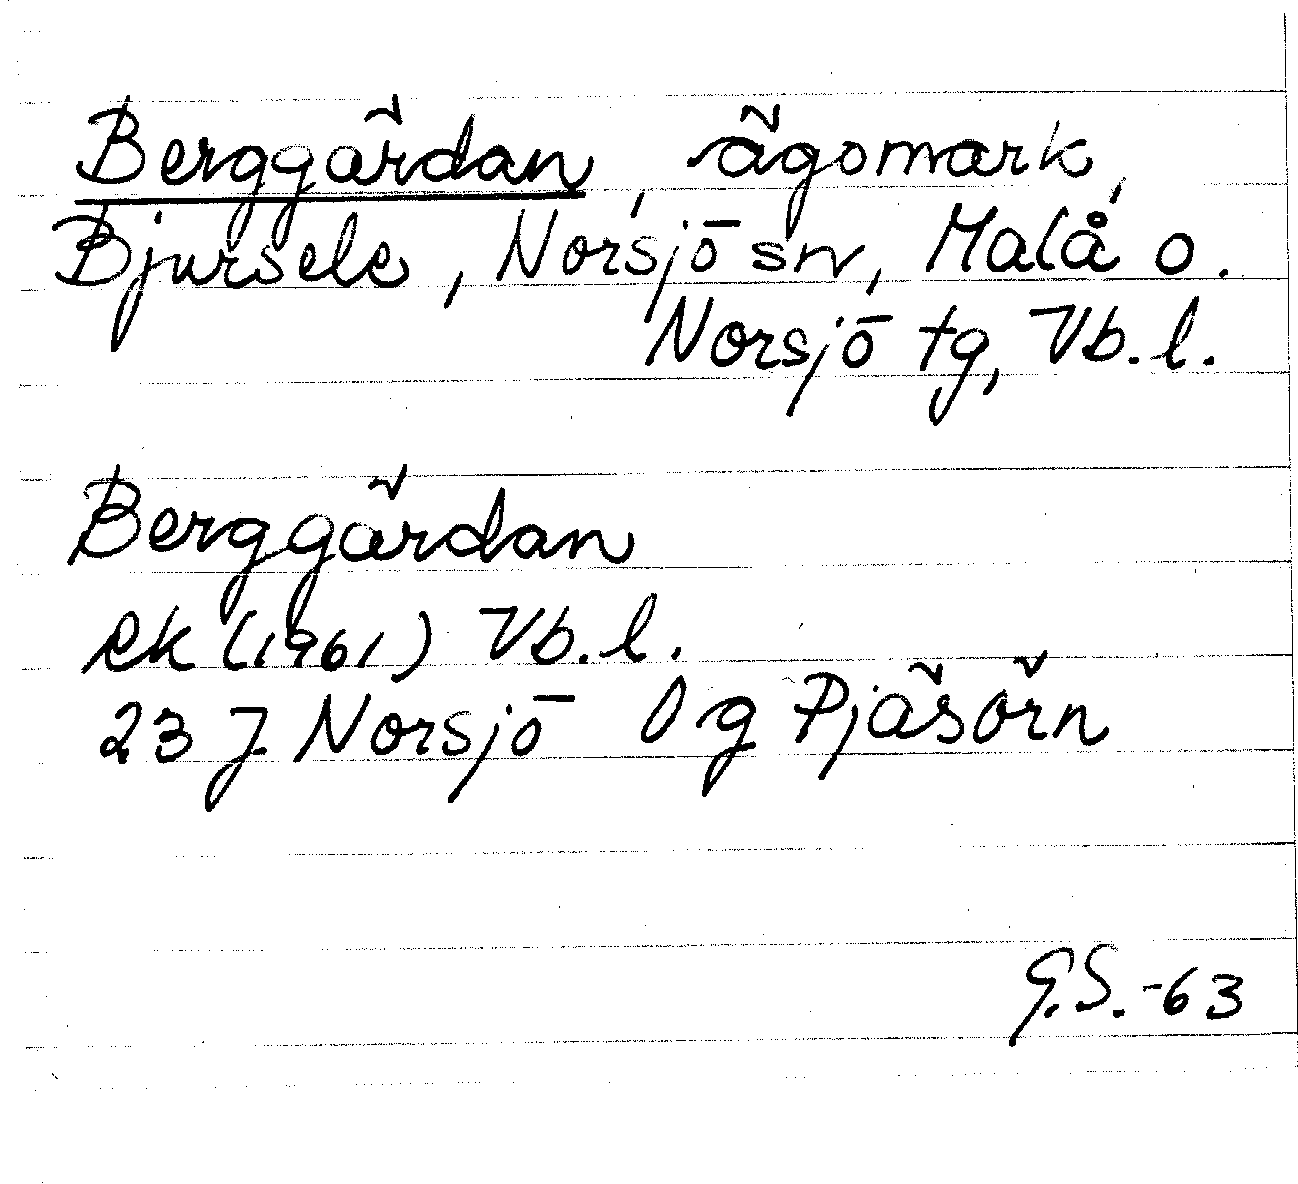 Berggärdan, ägomark,
Bjursele, Norsjö sn, Malå o.
Norsjö tg, Vb.l.
Berggärdan
Rk (1961) Vb.l.
23 J Norsjö 0 g Pjäsörn
G.S.-63